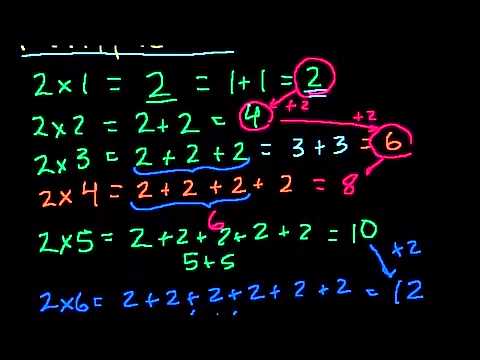 2×1 = 2 = 1+1 = 2
+2
2×2 = 2+2 = 4 +2
2×3 = 2+2+2 = 3+3 = 6
2×4 = 2+2+2+2 = 8
6
2×5 = 2+2+2+2+2 = 10
5+5 +2
2×6 = 2+2+2+2+2+2 = 12